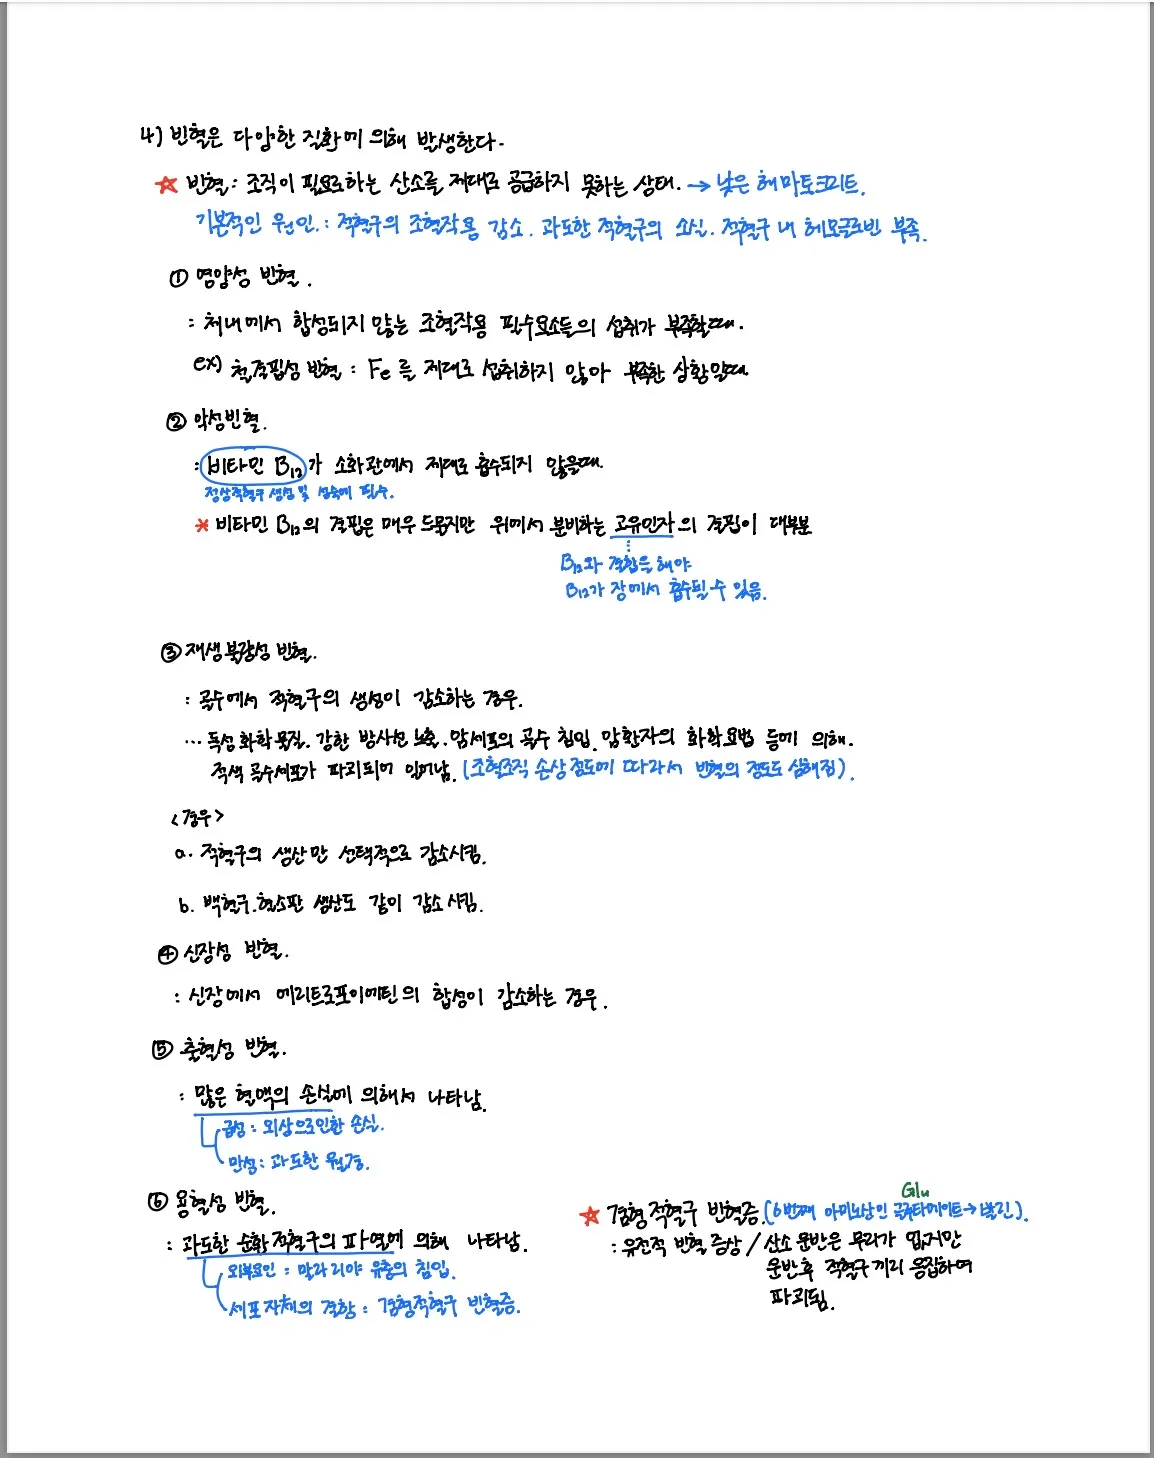 4) 빈혈은 다양한 질환에 의해 발생한다.
☆ 빈혈 : 조직이 필요로하는 산소를 제대로 공급하지 못하는 상태. → 낮은 헤마토크리트.
기본적인 원인. : 적혈구의 조혈작용 감소. 과도한 적혈구의 소실. 적혈구 내 헤모글로빈 부족.
① 영양성 빈혈.
: 체내에서 합성되지 않는 조혈작용 필수요소들의 섭취가 부족할때.
ex) 철결핍성 빈혈 : Fe를 제대로 섭취하지 않아 부족한 상황일때
② 악성빈혈.
: 비타민 B12가 소화관에서 제대로 흡수되지 않을때.
정상적혈구 생성 및 성숙에 필수.
* 비타민 B12의 결핍은 매우 드물지만 위에서 분비하는 고유인자의 결핍이 대부분
B12와 결합을 해야
B12가 장에서 흡수될 수 있음.
③ 재생불량성 빈혈.
: 골수에서 적혈구의 생성이 감소하는 경우.
… 독성 화학 물질. 강한 방사선 노출. 암세포의 골수 침입. 암환자의 화학요법 등에 의해.
적색 골수세포가 파괴되어 일어남. (조혈조직 손상 정도에 따라서 빈혈의 정도도 심해짐).
<경우>
a. 적혈구의 생산만 선택적으로 감소시킴.
b. 백혈구. 혈소판 생산도 같이 감소시킴.
④ 신장성 빈혈.
: 신장에서 에리트로포이에틴의 합성이 감소하는 경우.
⑤ 출혈성 빈혈.
: 많은 혈액의 손실에 의해서 나타남.
급성 : 외상으로인한 손실.
만성 : 과도한 월경.
⑥ 용혈성 빈혈.
: 과도한 순환 적혈구의 파열에 의해 나타남.
외부요인 : 말라리아 유충의 침입.
세포자체의 결함 : 겸형적혈구 빈혈증.
Glu
☆ 겸형적혈구 빈혈증. (6번째 아미노산인 글루타메이트→발린).
: 유전적 빈혈 증상 / 산소 운반은 무리가 없지만
운반후 적혈구끼리 응집하며
파괴됨.